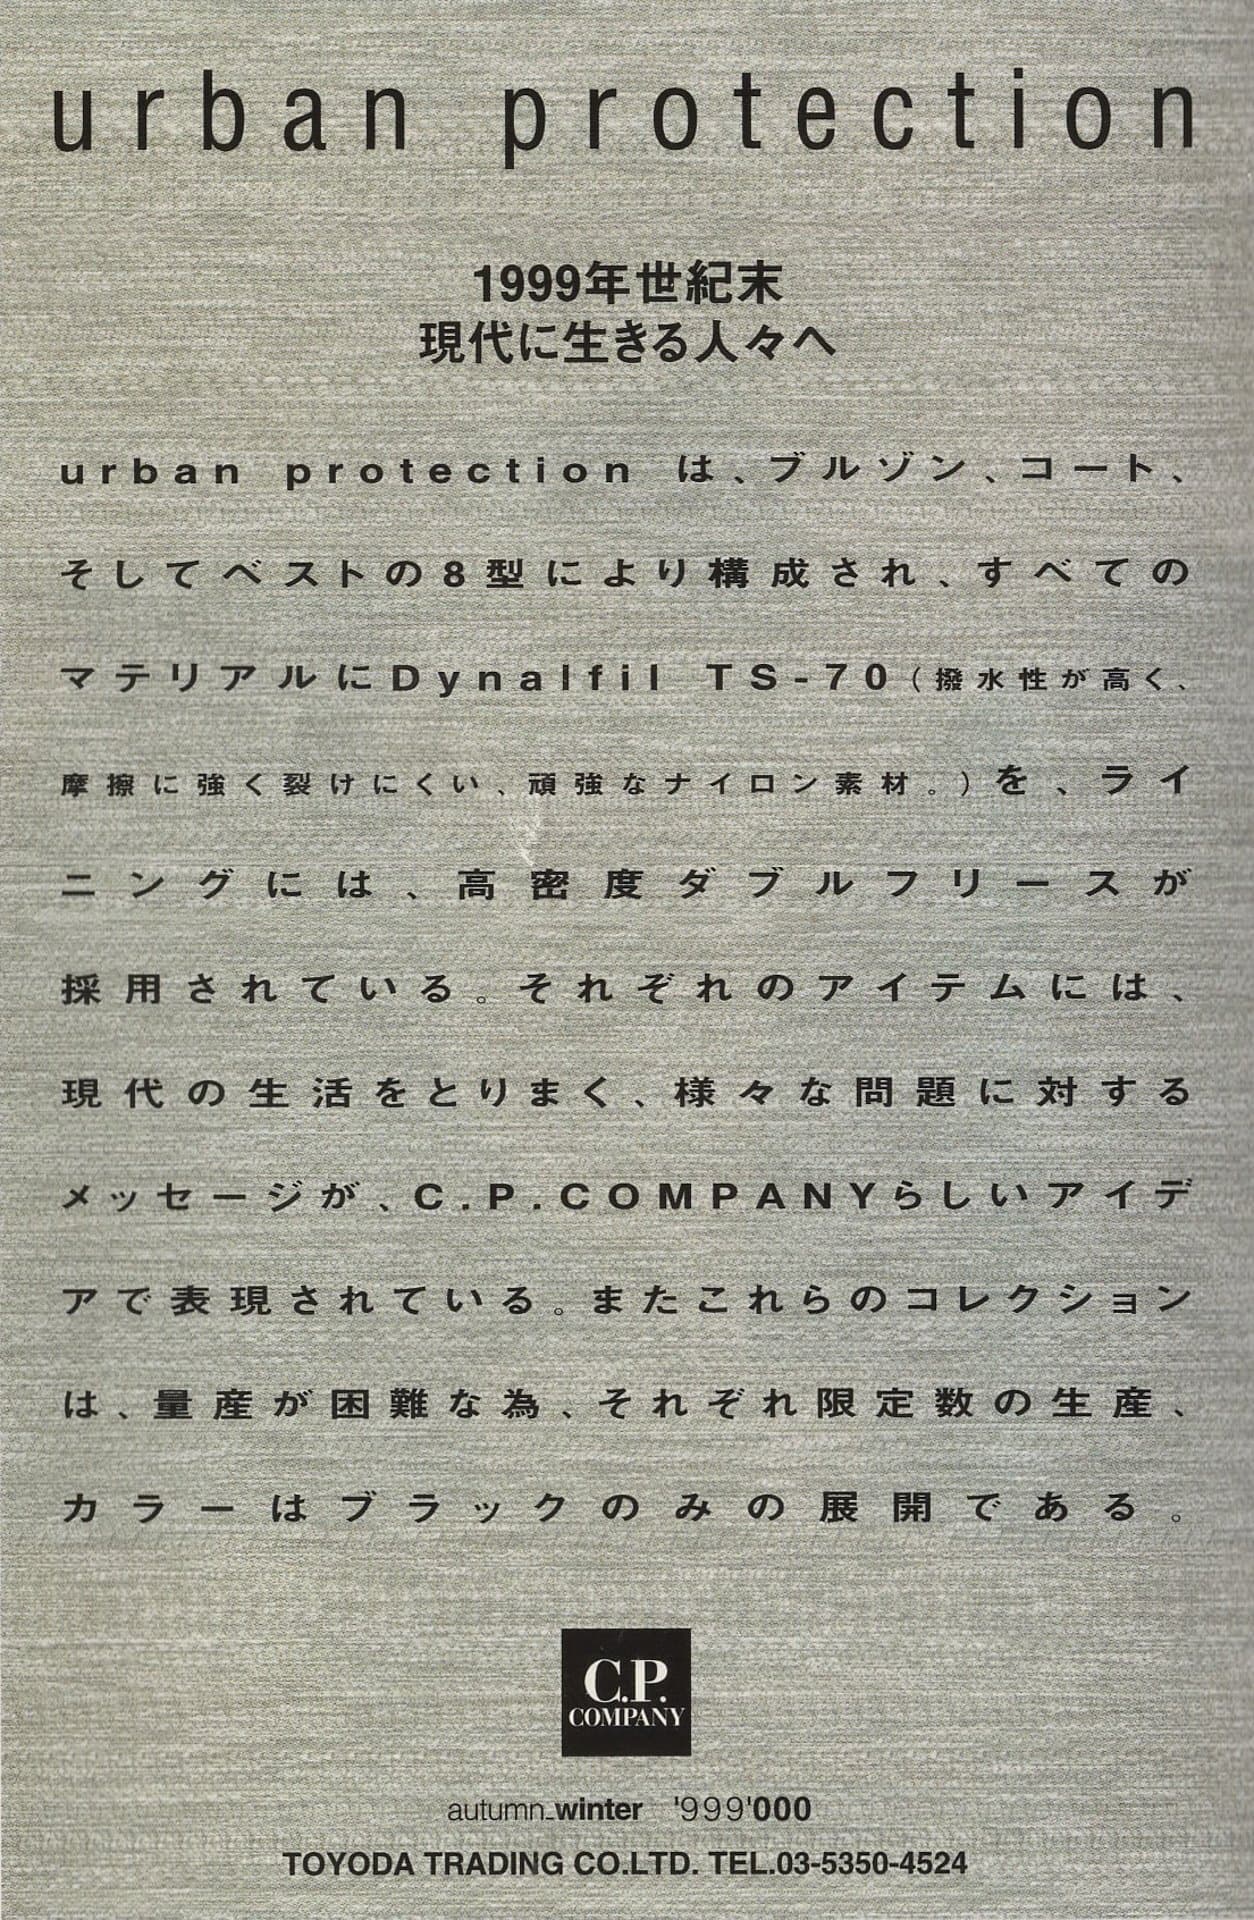 urban protection
1999年世紀末
現代に生きる人々へ
urban protection は、ブルゾン、コート、
そしてベストの8型により構成され、すべての
マテリアルにDynalfil TS-70(撥水性が高く、
摩擦に強く裂けにくい、頑強なナイロン素材。)を、ライ
ニングには、高密度ダブルフリースが
採用されている。それぞれのアイテムには、
現代の生活をとりまく、様々な問題に対する
メッセージが、C.P.COMPANYらしいアイデ
アで表現されている。またこれらのコレクション
は、量産が困難な為、それぞれ限定数の生産、
カラーはブラックのみの展開である。
C.P.
COMPANY
autumn_winter '999'000
TOYODA TRADING CO.LTD. TEL.03-5350-4524